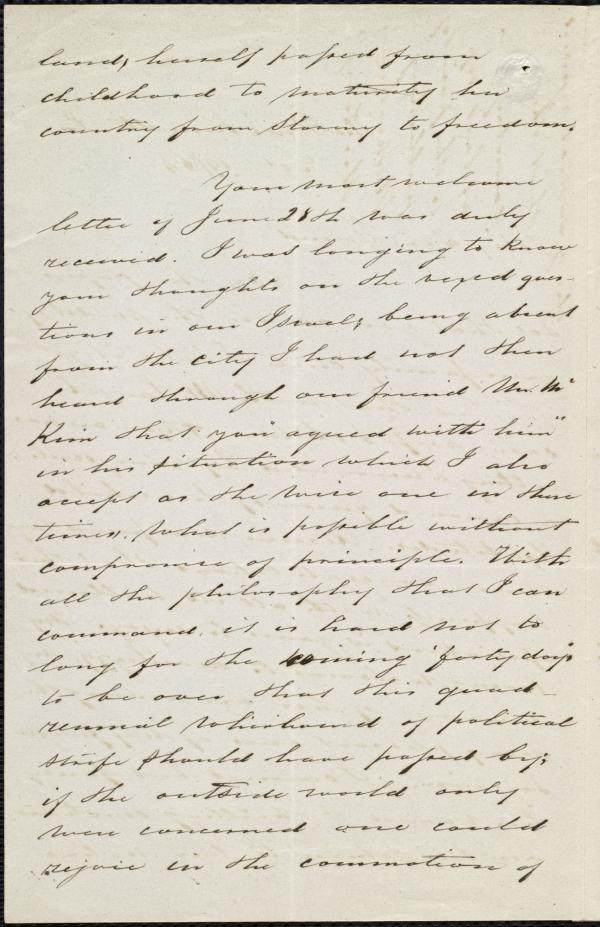 land, herself passed from
childhood to maturity her
country from Slavery to freedom.
Your most welcome
letter of June 28th was duly
received. I was longing to know
your thoughts on the vexed ques-
tions in our Israel; being absent
from the city I had not then
heard through our friend Mr. Mc
Kim that you "agreed with him"
in his situation which I also
accept as the wise one in these
times. What is possible without
compromise of principle. With
all the philosophy that I can
command, it is hard not to
long for the coming 'forty days'
to be over that this quad-
rennial whirlwind of political
strife should have passed by;
if the outside world only
were concerned one could
rejoice in the commotion of